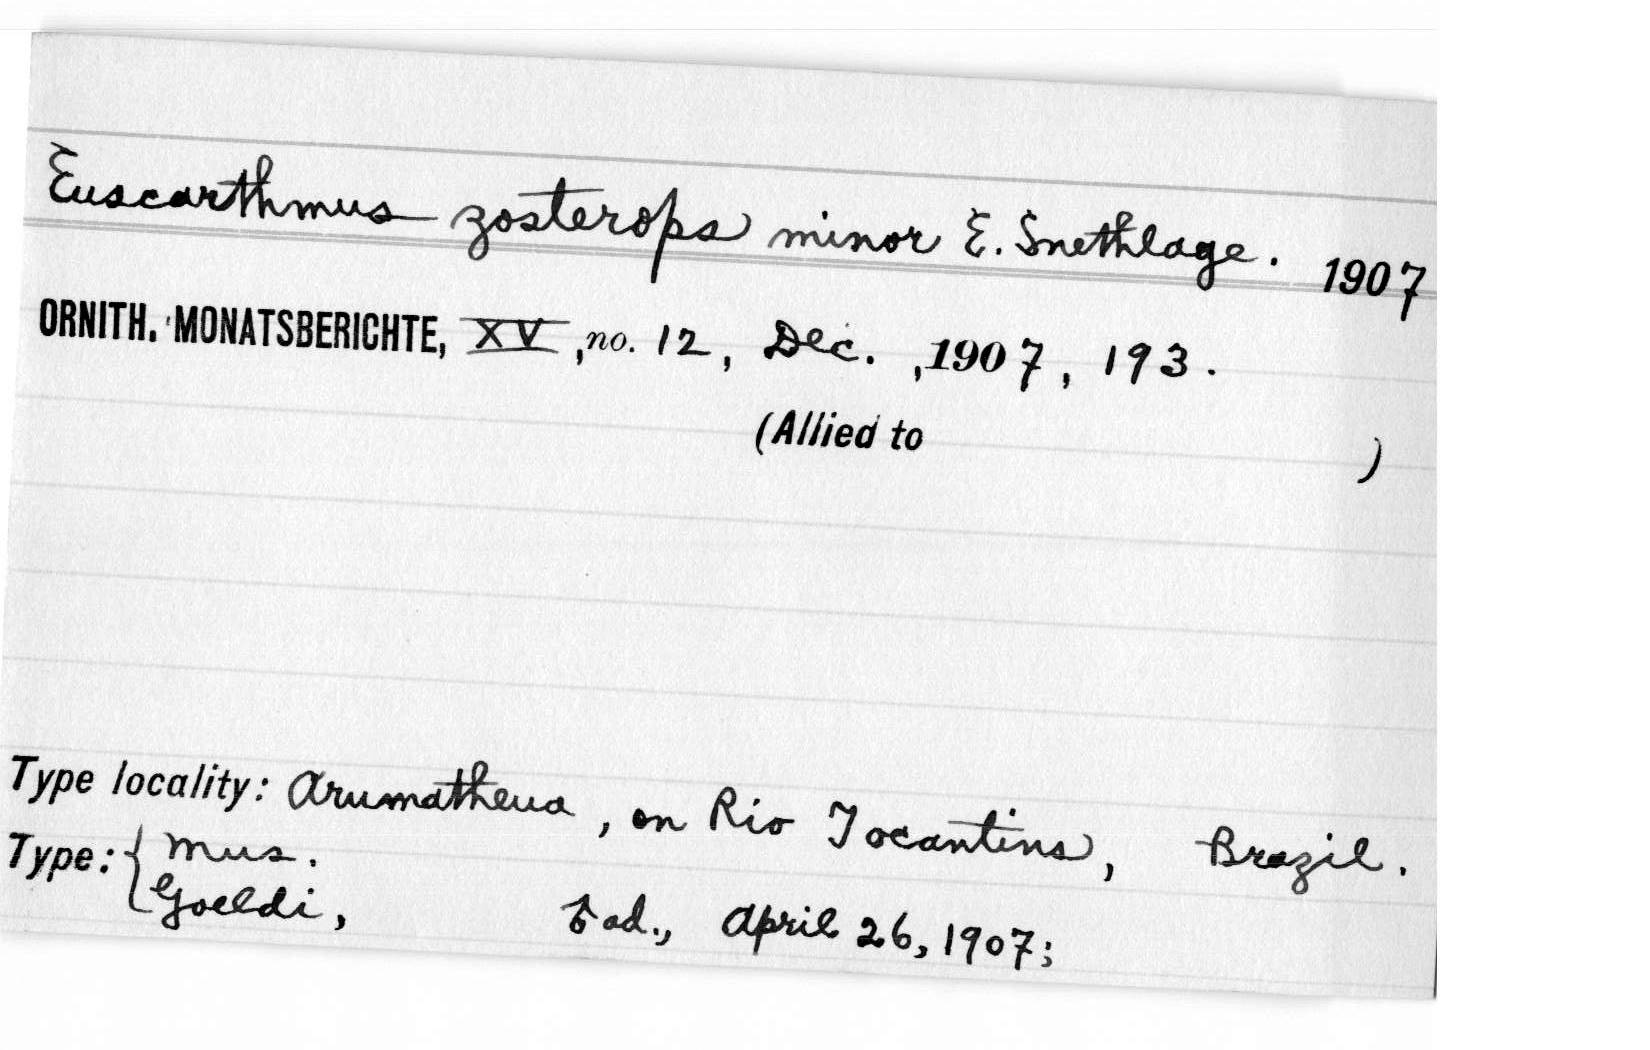 Euscarthmus zosterops minor E. Snethlage. 1907
ORNITH. MONATSBERICHTE, XV, no. 12, Dec. ,1907, 193.
(Allied to )
Type locality: Arumatheua, on Rio Tocantins, Brazil.
Type: { Mus.
Goeldi, ♂ ad., April 26, 1907;